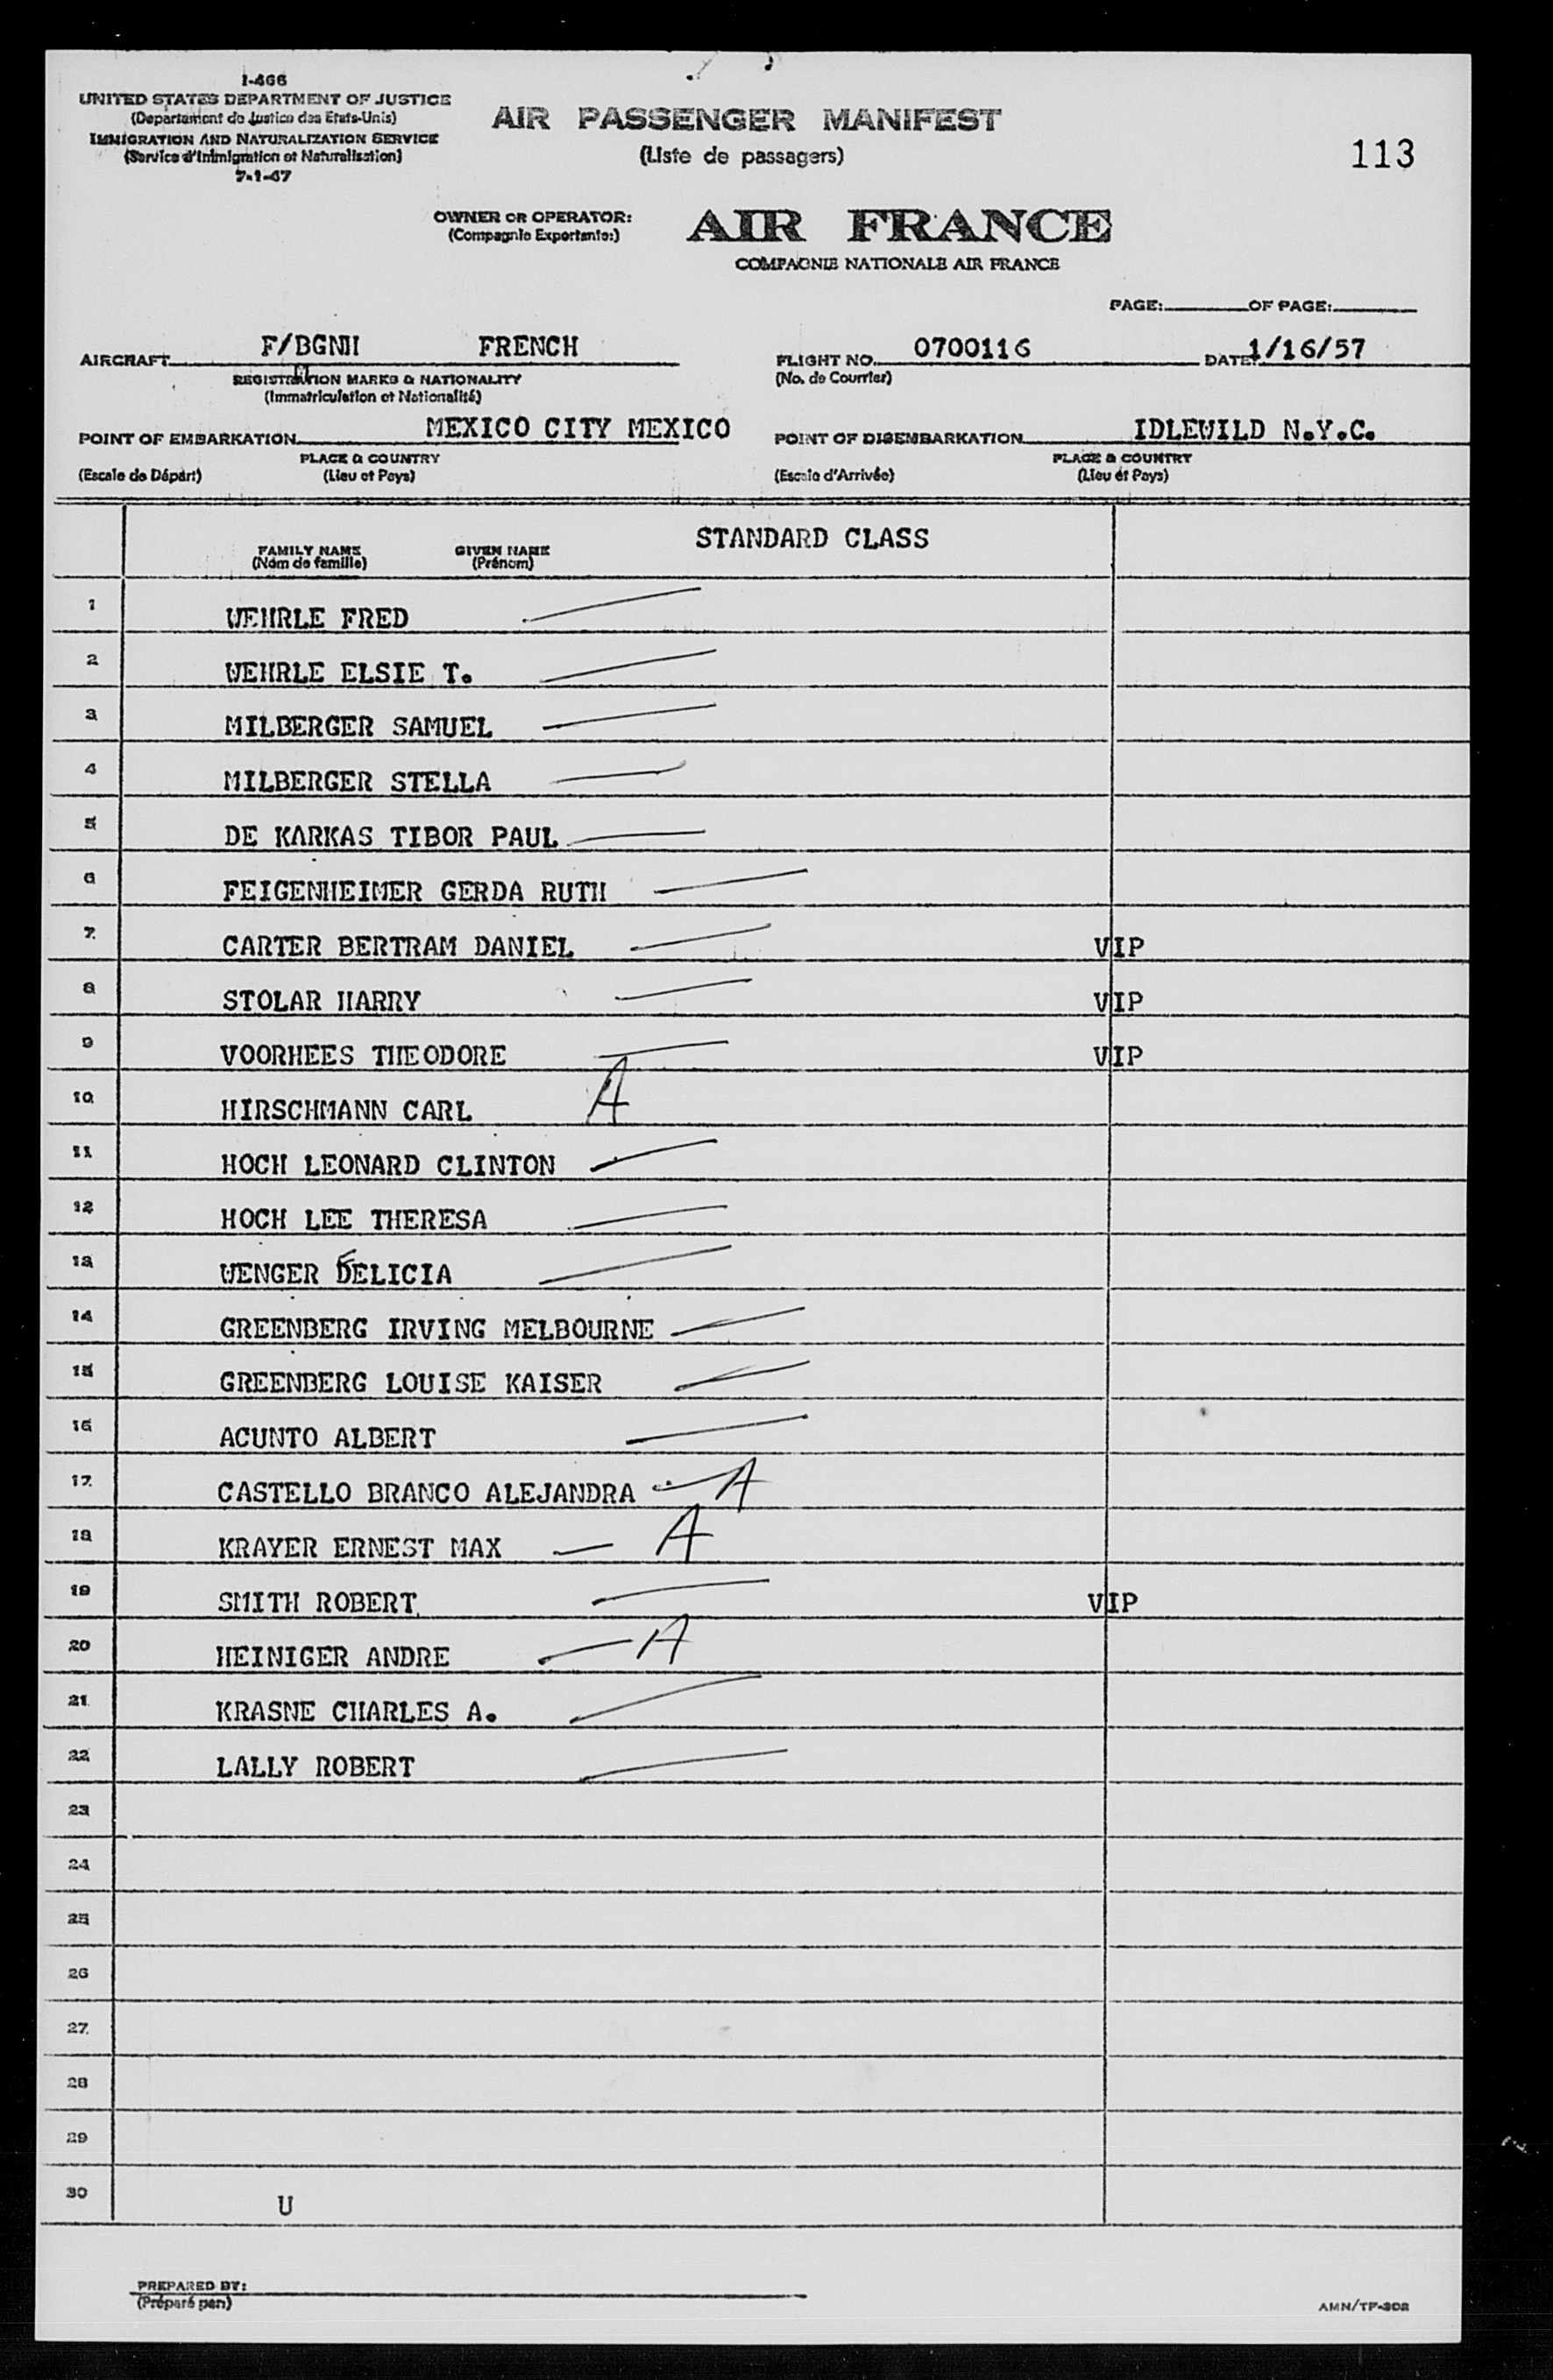 I-466
UNITED STATES DEPARTMENT OF JUSTICE
(Departament de Justice des Etats-Unis)
IMMIGRATION AND NATURALIZATION SERVICE
(Service d'Immigration et Naturalisation)
7-1-47
AIR PASSENGER MANIFEST
(Liste de passagers)
113
OWNER OR OPERATOR: AIR FRANCE
(Compagnie Exportante:)
COMPAGNIE NATIONALE AIR FRANCE
PAGE: OF PAGE:
AIRCRAFT F/BGNH FRENCH FLIGHT NO. 0700116 DATE: 1/16/57
REGISTRATION MARKS & NATIONALITY (No. de Courrier)
(Immatriculation et Nationalité)
POINT OF EMBARKATION MEXICO CITY MEXICO POINT OF DISEMBARKATION IDLEWILD N.Y.C.
PLACE & COUNTRY PLACE & COUNTRY
(Escale de Départ) (Lieu et Pays) (Escale d'Arrivée) (Lieu et Pays)
STANDARD CLASS
FAMILY NAME GIVEN NAME
(Nom de famille) (Prénom)
1 WEHRLE FRED
2 WEHRLE ELSIE T.
3 MILBERGER SAMUEL
4 MILBERGER STELLA
5 DE KARKAS TIBOR PAUL
6 FEIGENHEIMER GERDA RUTH
7 CARTER BERTRAM DANIEL VIP
8 STOLAR HARRY VIP
9 VOORHEES THEODORE VIP
10 HIRSCHMANN CARL A
11 HOCH LEONARD CLINTON
12 HOCH LEE THERESA
13 WENGER DELICIA
14 GREENBERG IRVING MELBOURNE
15 GREENBERG LOUISE KAISER
16 ACUNTO ALBERT
17 CASTELLO BRANCO ALEJANDRA A
18 KRAYER ERNEST MAX A
19 SMITH ROBERT VIP
20 HEINIGER ANDRE A
21 KRASNE CHARLES A.
22 LALLY ROBERT
23
24
25
26
27
28
29
30 U
PREPARED BY:
(Préparé par)
AMN/TF-302